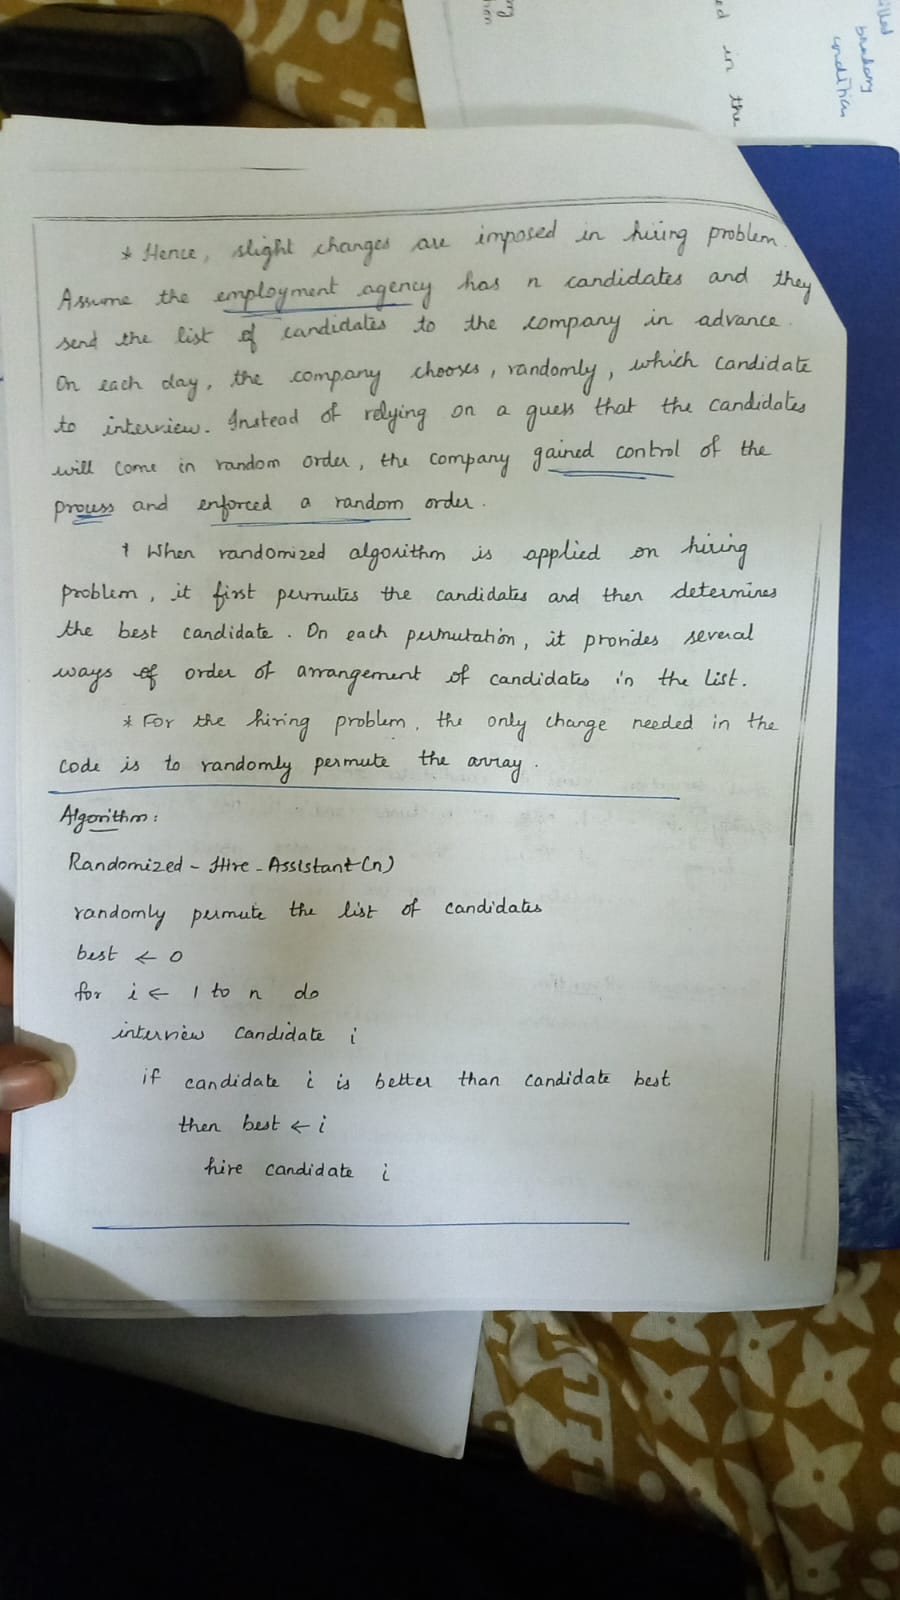 ng
tion
ed in the
illed
bradary
condition
* Hence, slight changes are imposed in hiring problem.
Assume the employment agency has n candidates and they
send the list of candidates to the company in advance.
On each day, the company chooses, randomly, which candidate
to interview. Instead of relying on a guess that the candidates
will come in random order, the company gained control of the
process and enforced a random order.
* When randomized algorithm is applied on hiring
problem, it first permutes the candidates and then determines
the best candidate. On each permutation, it provides several
ways of order of arrangement of candidates in the list.
* For the hiring problem, the only change needed in the
code is to randomly permute the array.
Algorithm:
Randomized - Hire - Assistant (n)
randomly permute the list of candidates
best ← 0
for i ← 1 to n do
interview candidate i
if candidate i is better than candidate best
then best ← i
hire candidate i